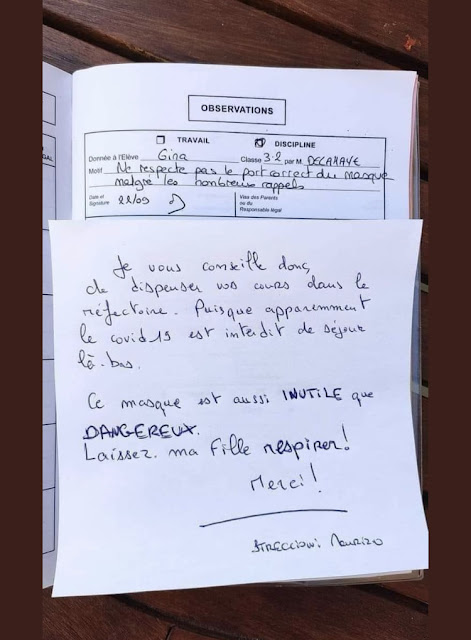 OBSERVATIONS
TRAVAIL DISCIPLINE
Donnée à l'Elève Gina Classe 3-2 par M. DELAHAYE
Motif Ne respecte pas le port correct du masque
malgré les nombreux rappels
Date et Signature 22/09 Visa des Parents ou du Responsable légal
Je vous conseille donc,
de dispenser vos cours dans le
réfectoire. Puisque apparemment
le covid 19 est interdit de séjour
là-bas.
Ce masque est aussi INUTILE que
DANGEREUX.
Laissez ma fille respirer!
Merci!
STRECCIONI Maurizo